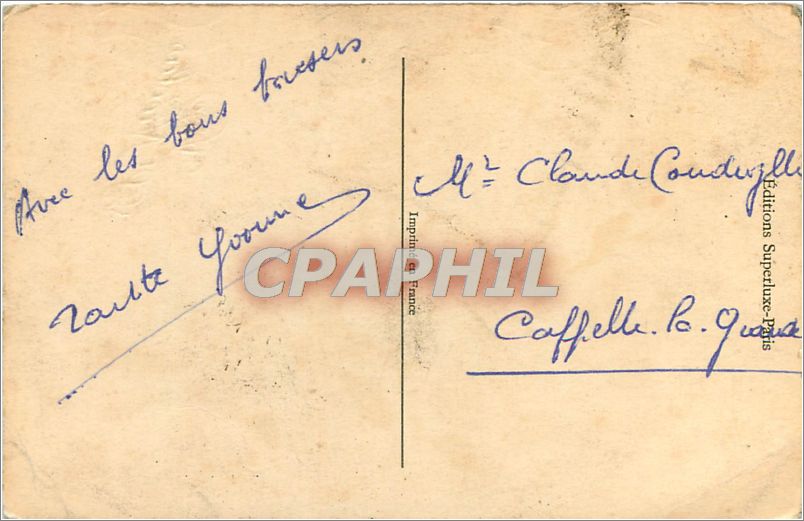 Avec les bons baisers
Tantte Yvonne
Mr Claude
Cappelle-la-Grande
Imprimé en France
Éditions Superluxe-Paris
CPAPHIL